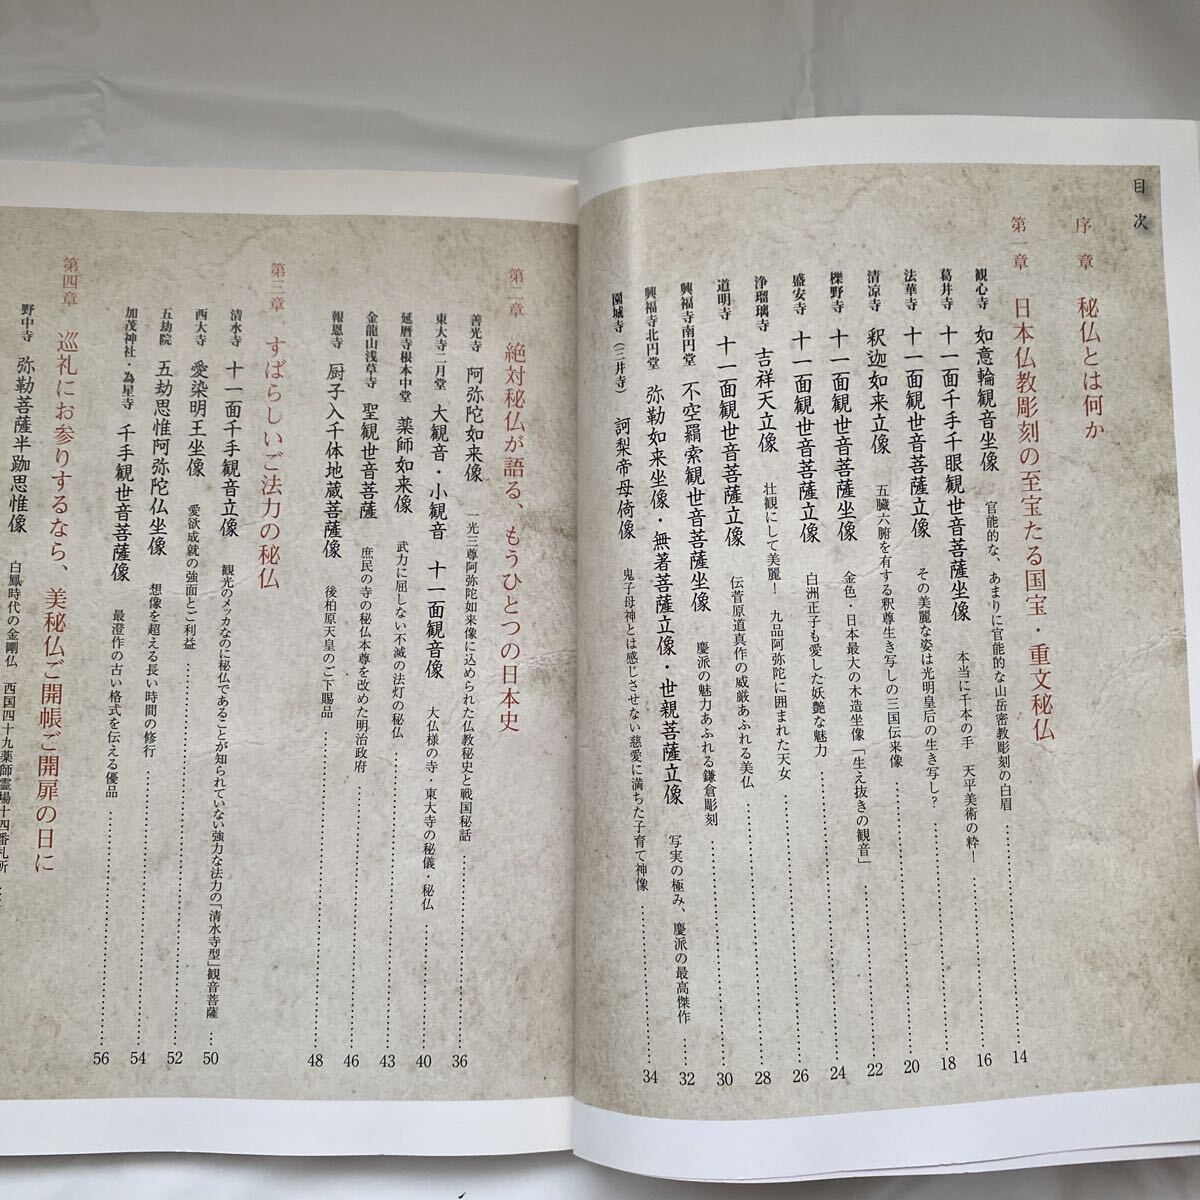 目次
序章 秘仏とは何か
第一章 日本仏教彫刻の至宝たる国宝・重文秘仏
観心寺 如意輪観音坐像 官能的な、あまりに官能的な山岳密教彫刻の白眉 …… 14
葛井寺 十一面千手千眼観世音菩薩坐像 本当に千本の手 天平美術の粋! …… 16
法華寺 十一面観世音菩薩立像 その美麗な姿は光明皇后の生き写し? …… 18
清凉寺 釈迦如来立像 五臓六腑を有する釈尊生き写しの三国伝来像 …… 20
櫟野寺 十一面観世音菩薩坐像 金色・日本最大の木造坐像「生え抜きの観音」 …… 22
盛安寺 十一面観世音菩薩立像 白洲正子も愛した妖艶な魅力 …… 24
浄瑠璃寺 吉祥天立像 壮観にして美麗! 九品阿弥陀に囲まれた天女 …… 26
道明寺 十一面観世音菩薩立像 伝菅原道真作の威厳あふれる美仏 …… 28
興福寺南円堂 不空羂索観世音菩薩坐像 慶派の魅力あふれる鎌倉彫刻 …… 30
興福寺北円堂 弥勒如来坐像・無著菩薩立像・世親菩薩立像 写実の極み、慶派の最高傑作 …… 32
園城寺(三井寺) 訶梨帝母倚像 鬼子母神とは感じさせない慈愛に満ちた子育て神像 …… 34
第二章 絶対秘仏が語る、もうひとつの日本史
善光寺 阿弥陀如来像 一光三尊阿弥陀如来像に込められた仏教秘史と戦国秘話 …… 36
東大寺二月堂 大観音・小観音 十一面観音像 大仏様の寺・東大寺の秘儀・秘仏 …… 40
延暦寺根本中堂 薬師如来像 武力に屈しない不滅の法灯の秘仏 …… 43
金龍山浅草寺 聖観世音菩薩 庶民の寺の秘仏本尊を改めた明治政府 …… 46
報恩寺 厨子入千体地蔵菩薩像 後柏原天皇のご下賜品 …… 48
第三章 すばらしいご法力の秘仏
清水寺 十一面千手観音立像 観光のメッカなのに秘仏であることが知られていない強力な法力の「清水寺型」観音菩薩 …… 50
西大寺 愛染明王坐像 愛欲成就の強面とご利益 …… 52
五劫院 五劫思惟阿弥陀仏坐像 想像を超える長い時間の修行 …… 54
加茂神社・為星寺 千手観世音菩薩像 最澄作の古い格式を伝える優品 …… 56
第四章 巡礼にお参りするなら、美秘仏ご開帳ご開扉の日に
野中寺 弥勒菩薩半跏思惟像 白鳳時代の金剛仏 西国四十九薬師霊場十四番札所 ……